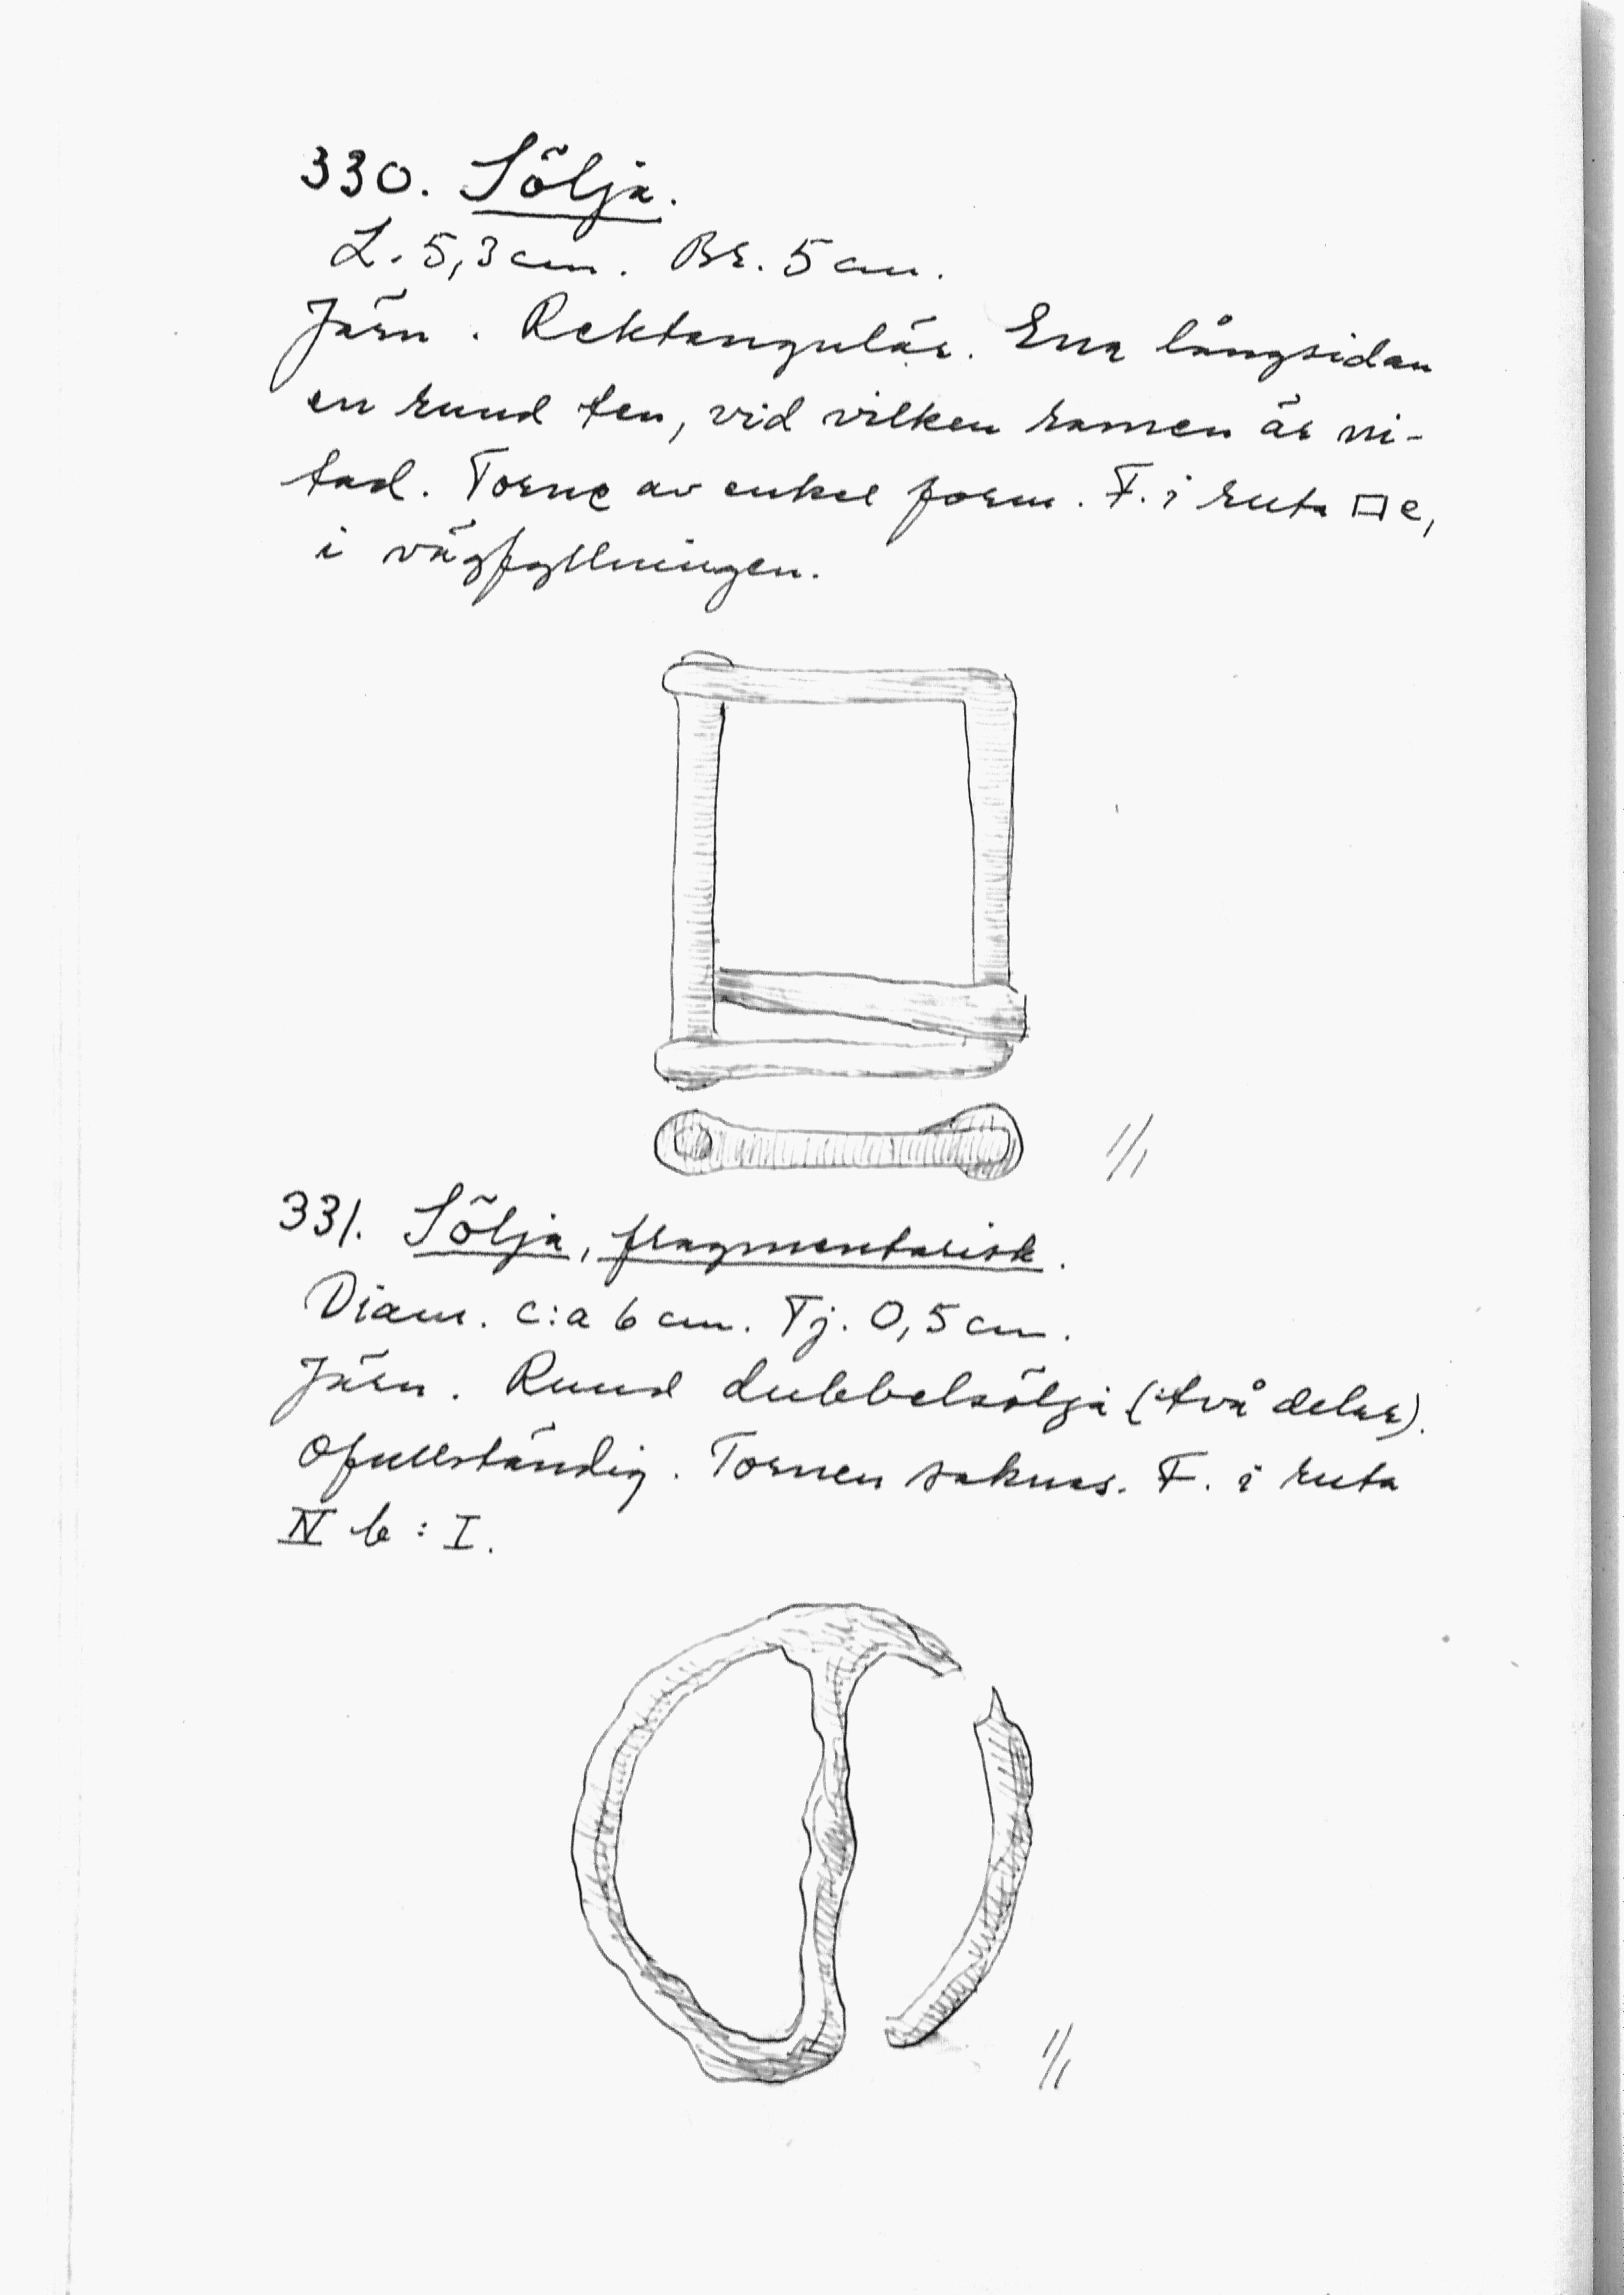 330. Sölja.
L. 5,3 cm. Br. 5 cm.
Järn. Rektangulär. Ena långsidan
en rund ten, vid vilken ramen är ni-
tad. Torne av enkel form. F. i ruta □ e,
i vägfyllningen.
1/1
331. Sölja, fragmentarisk.
Diam. c:a 6 cm. Tj. 0,5 cm.
Järn. Rund dubbelsölja (i två delar).
Ofullständig. Tornen saknas. F. i ruta
IV b : I.
1/1